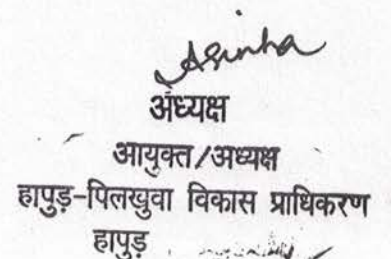 Asinha
अध्यक्ष
आयुक्त/अध्यक्ष
हापुड़-पिलखुवा विकास प्राधिकरण
हापुड़